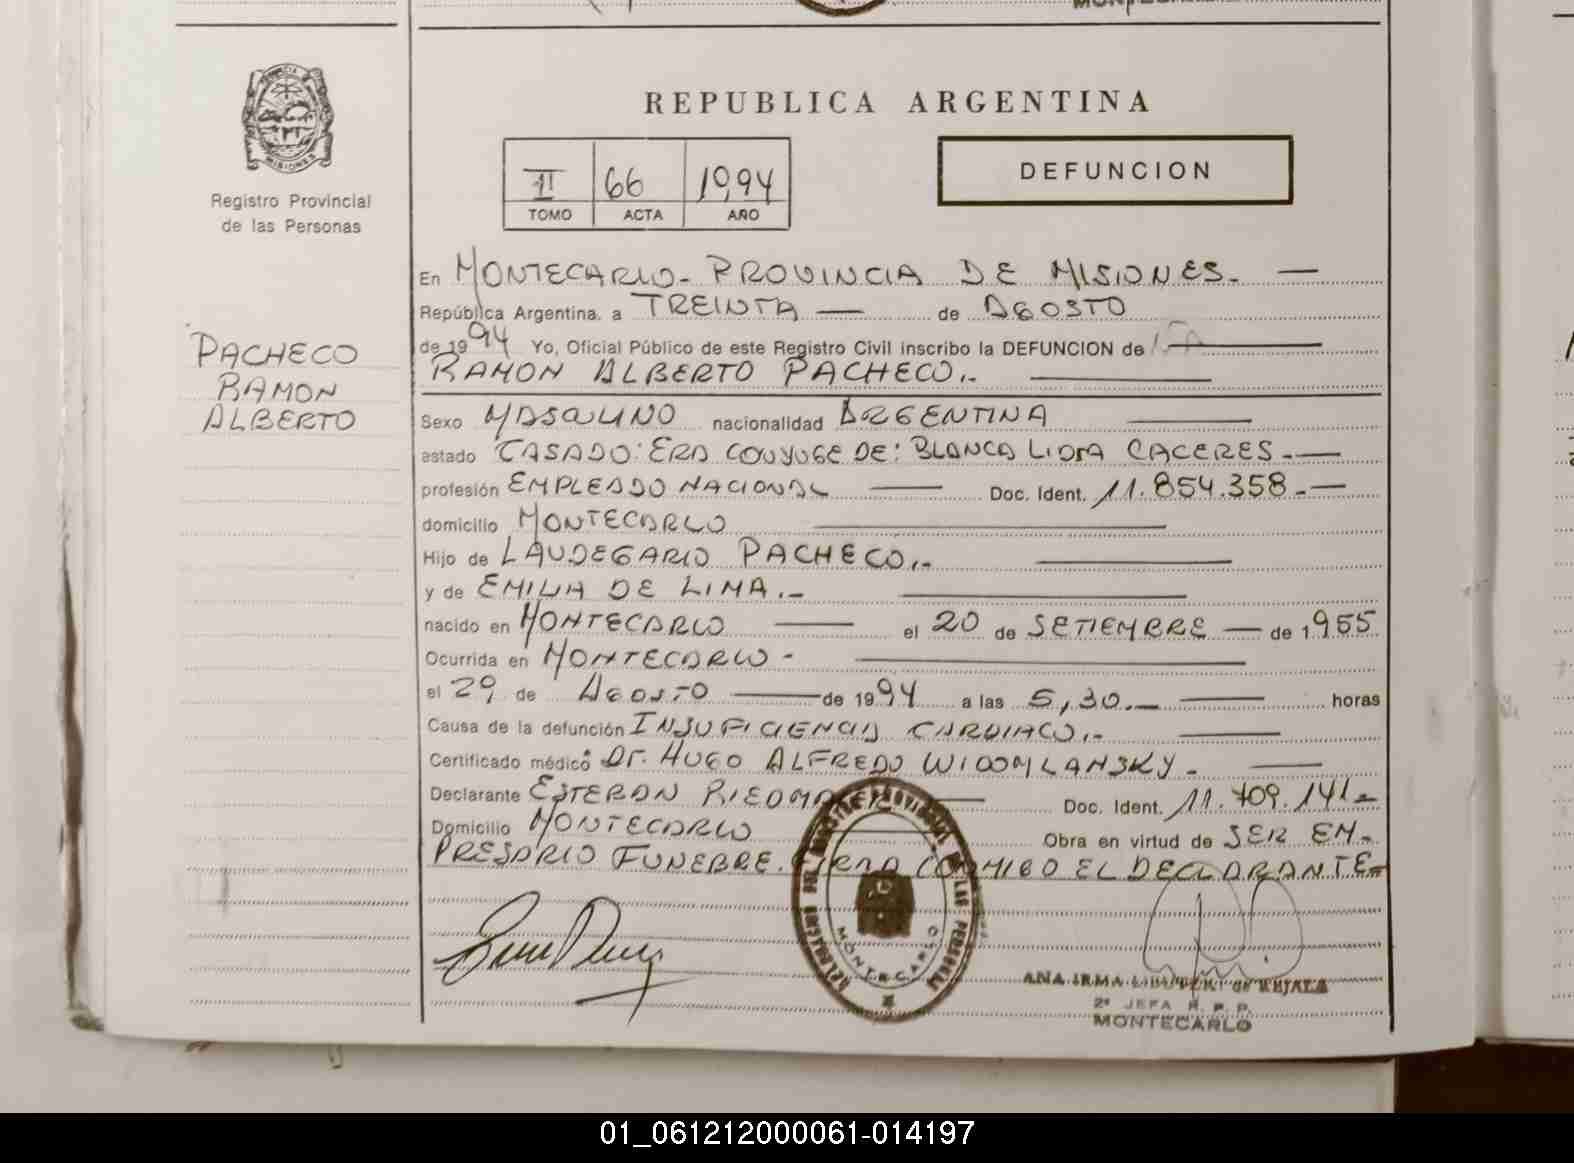 REPUBLICA ARGENTINA
II 66 1994
TOMO ACTA AÑO
DEFUNCION
PROVINCIA
MISIONES
Registro Provincial
de las Personas
PACHECO
RAMON
ALBERTO
En MONTECARLO - PROVINCIA DE MISIONES. —
República Argentina. a TREINTA — de AGOSTO
de 1994 Yo, Oficial Público de este Registro Civil inscribo la DEFUNCION de
RAMON ALBERTO PACHECO.-
Sexo MASCULINO nacionalidad ARGENTINA
estado CASADO: ERA CONYUGE DE: BLANCA LIDIA CACERES.-
profesión EMPLEADO NACIONAL — Doc. Ident. 11.854.358.-
domicilio MONTECARLO
Hijo de LAUDEGARIO PACHECO.-
y de EMILIA DE LIMA.-
nacido en MONTECARLO — el 20 de SETIEMBRE — de 1955
Ocurrida en MONTECARLO -
el 29 de AGOSTO — de 1994 a las 5,30.- horas
Causa de la defunción INSUFICIENCIA CARDIACO.-
Certificado médico Dr. HUGO ALFREDO WIDOMLANSKY -
Declarante ESTEBAN — Doc. Ident. 11.709.141-
Domicilio MONTECARLO Obra en virtud de SER EM-
PRESARIO FUNEBRE. FIRMA CONMIGO EL DECLARANTE-
MONTECARLO
ANA IRMA
2º JEFA R. P. P.
MONTECARLO
01_061212000061-014197